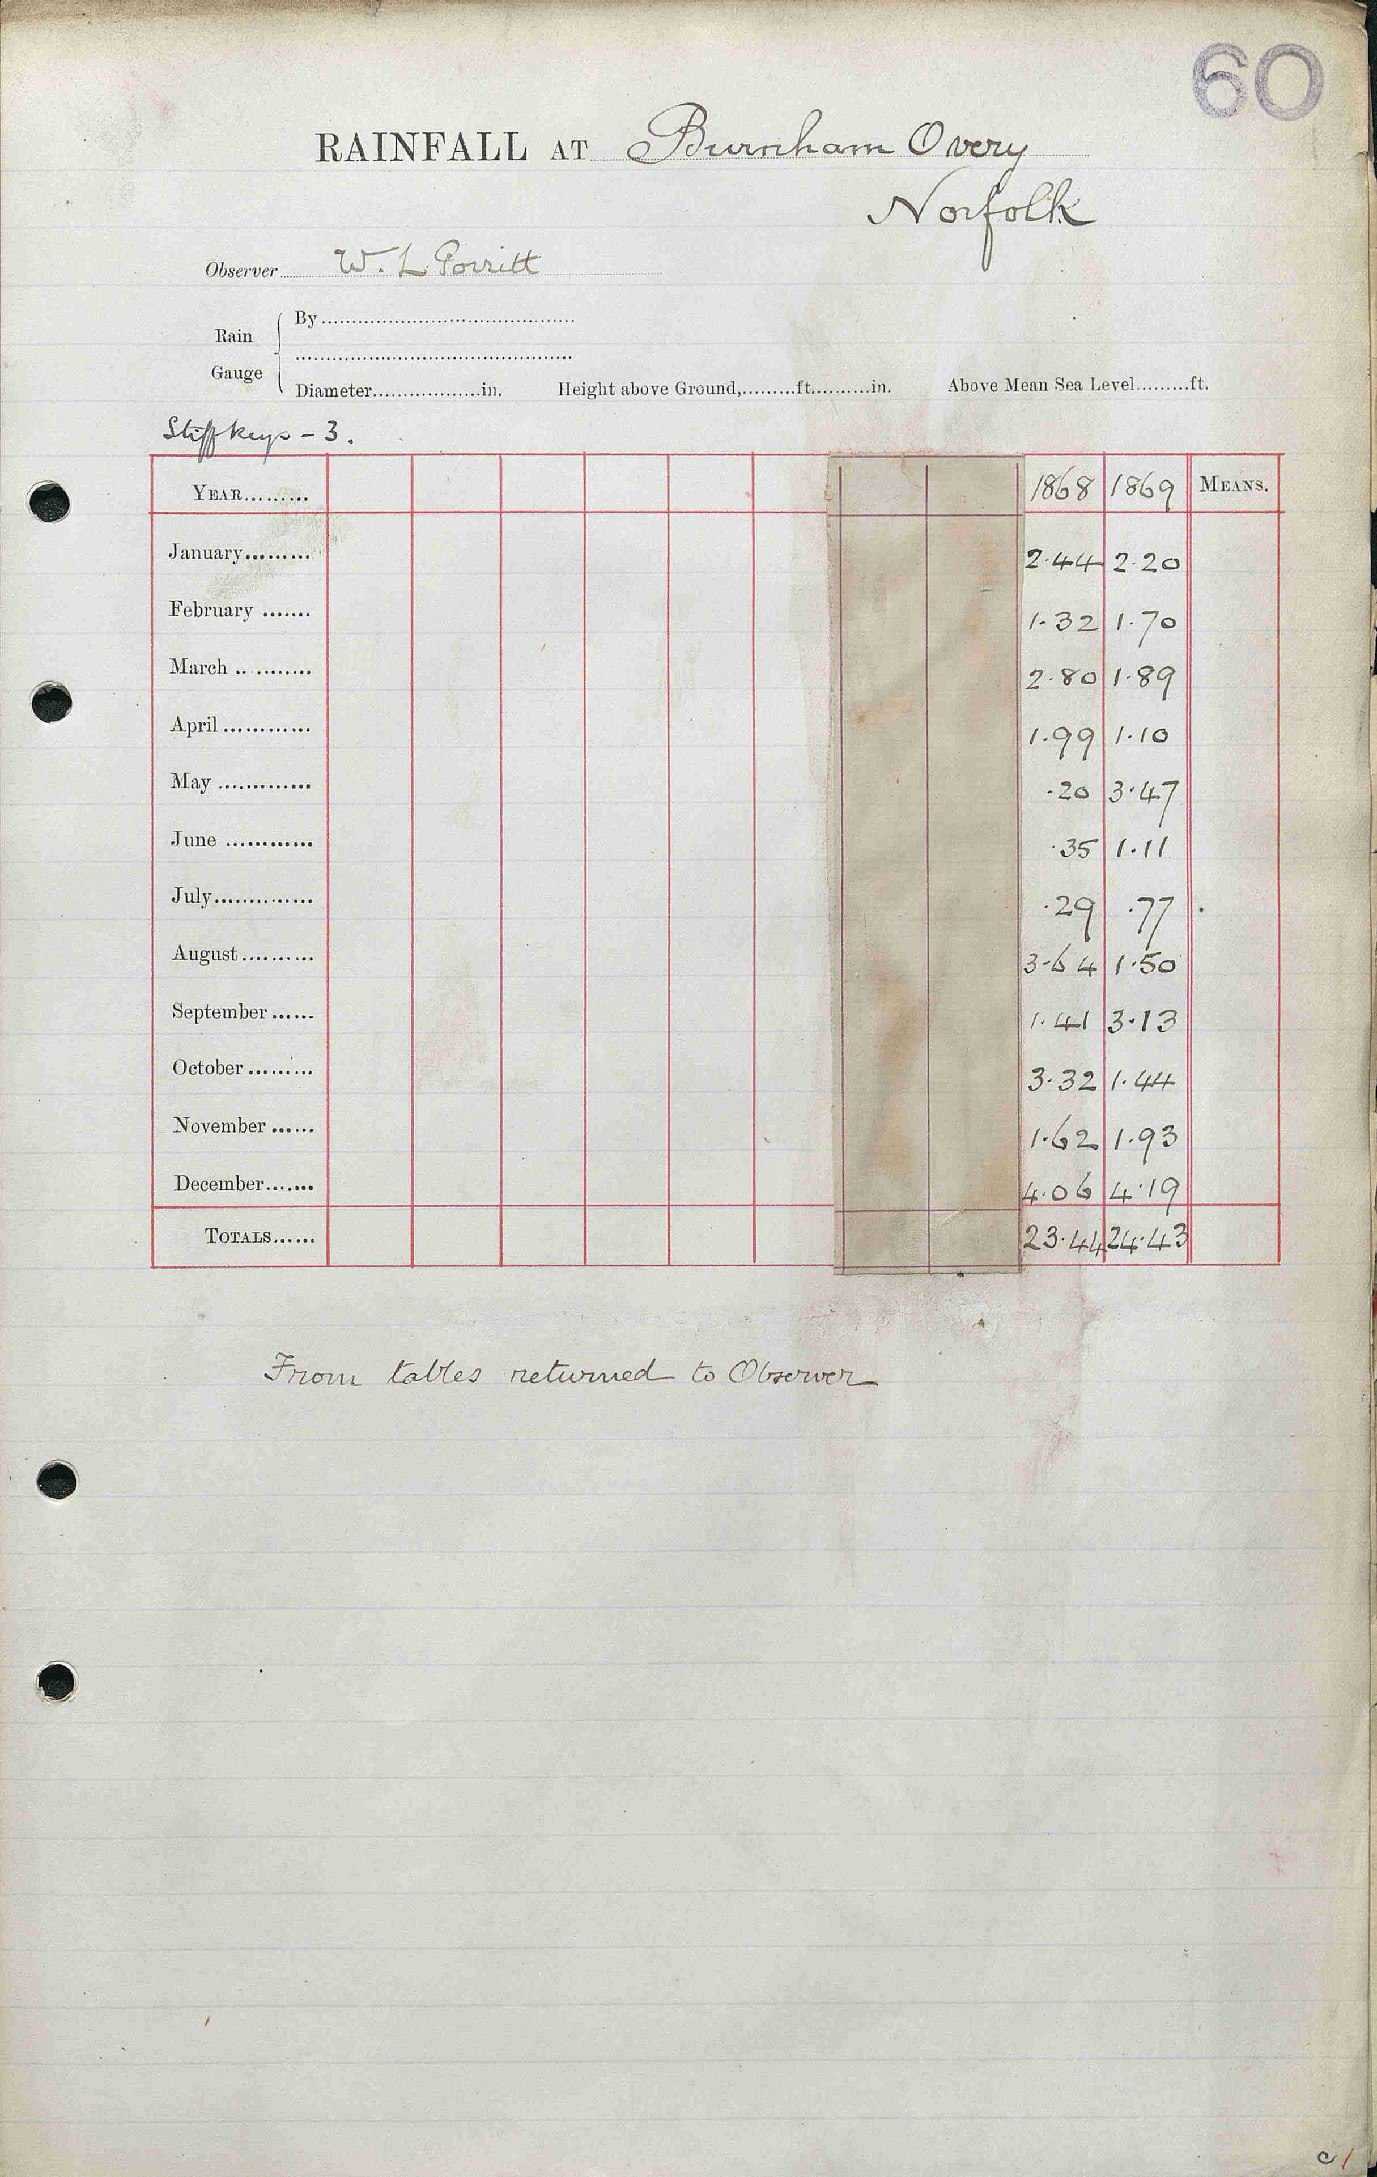 60
RAINFALL AT Burnham Overy
Norfolk
Observer W. L Porritt
Rain Gauge
By
Diameter in. Height above Ground, ft. in. Above Mean Sea Level ft.
Stiffkeys - 3.
YEAR 1868 1869 MEANS.
January 2.44 2.20
February 1.32 1.70
March 2.80 1.89
April 1.99 1.10
May .20 3.47
June .35 1.11
July .29 .77
August 3.64 1.50
September 1.41 3.13
October 3.32 1.44
November 1.62 1.93
December 4.06 4.19
TOTALS 23.44 24.43
From tables returned to Observer
c 1